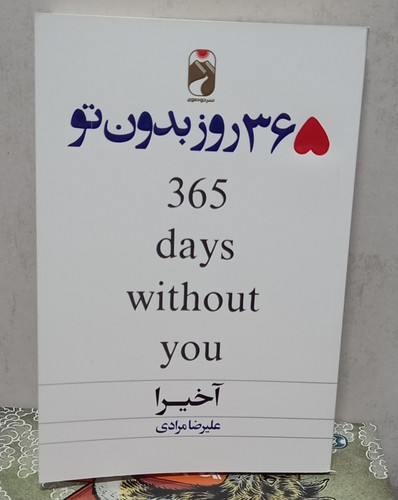 ۳۶۵ روز بدون تو
365
days
without
you
آخیرا
علیرضا مرادی